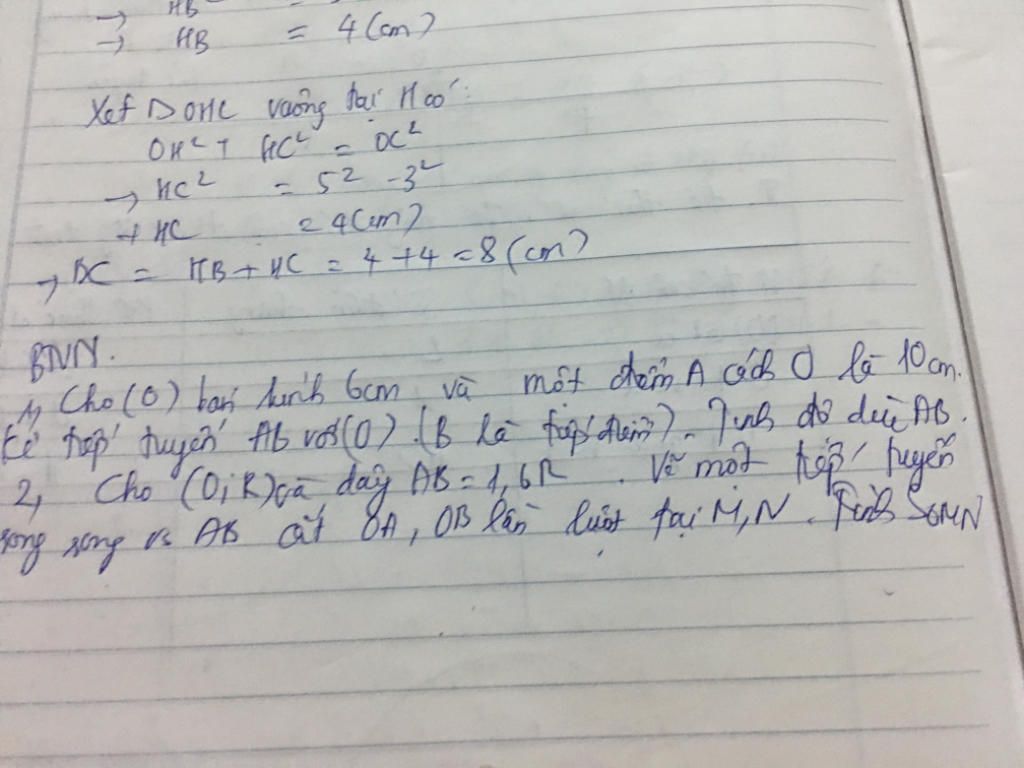 → HB =
→ HB = 4 (cm)
Xét ΔOHC vuông tại H có:
OH² + HC² = OC²
→ HC² = 5² - 3²
→ HC = 4 (cm)
→ BC = HB + HC = 4 + 4 = 8 (cm)
BTVN.
1, Cho (O) bán kính 6cm và một điểm A cách O là 10cm.
Kẻ tiếp tuyến AB với (O). (B là tiếp điểm). Tính độ dài AB.
2, Cho (O; R) và dây AB = 1,6R. Vẽ một tiếp tuyến
song song vs AB cắt OA, OB lần lượt tại M, N. Tính SOMN